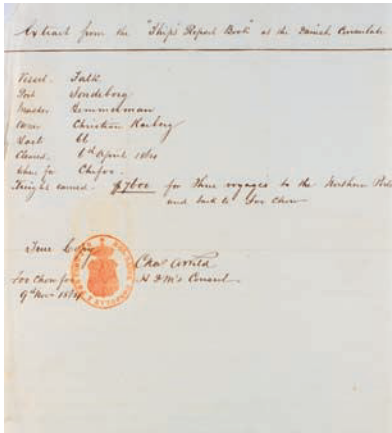 Extract from the "Ship's Report Book" at the Danish Consulate
Vessel. Falk
Port Sonderborg
Master Zemmerman
Owner Christian Karberg
Last
Cleared. 6th April 1864
Where for Chefoo.
Freight earned. $7600 for three voyages to the Northern Ports
and back to Foo Chow
True Copy
Foo Chow foo
9th Novr 1864
H D M's Consul